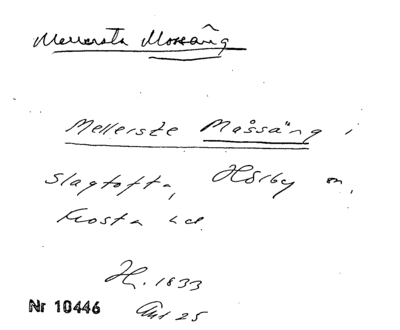 Mellersta Mossäng
Mellerste Måssäng i
Slagtofta, Hörby sn,
Frosta hd.
H. 1833
Akt 25
Nr 10446